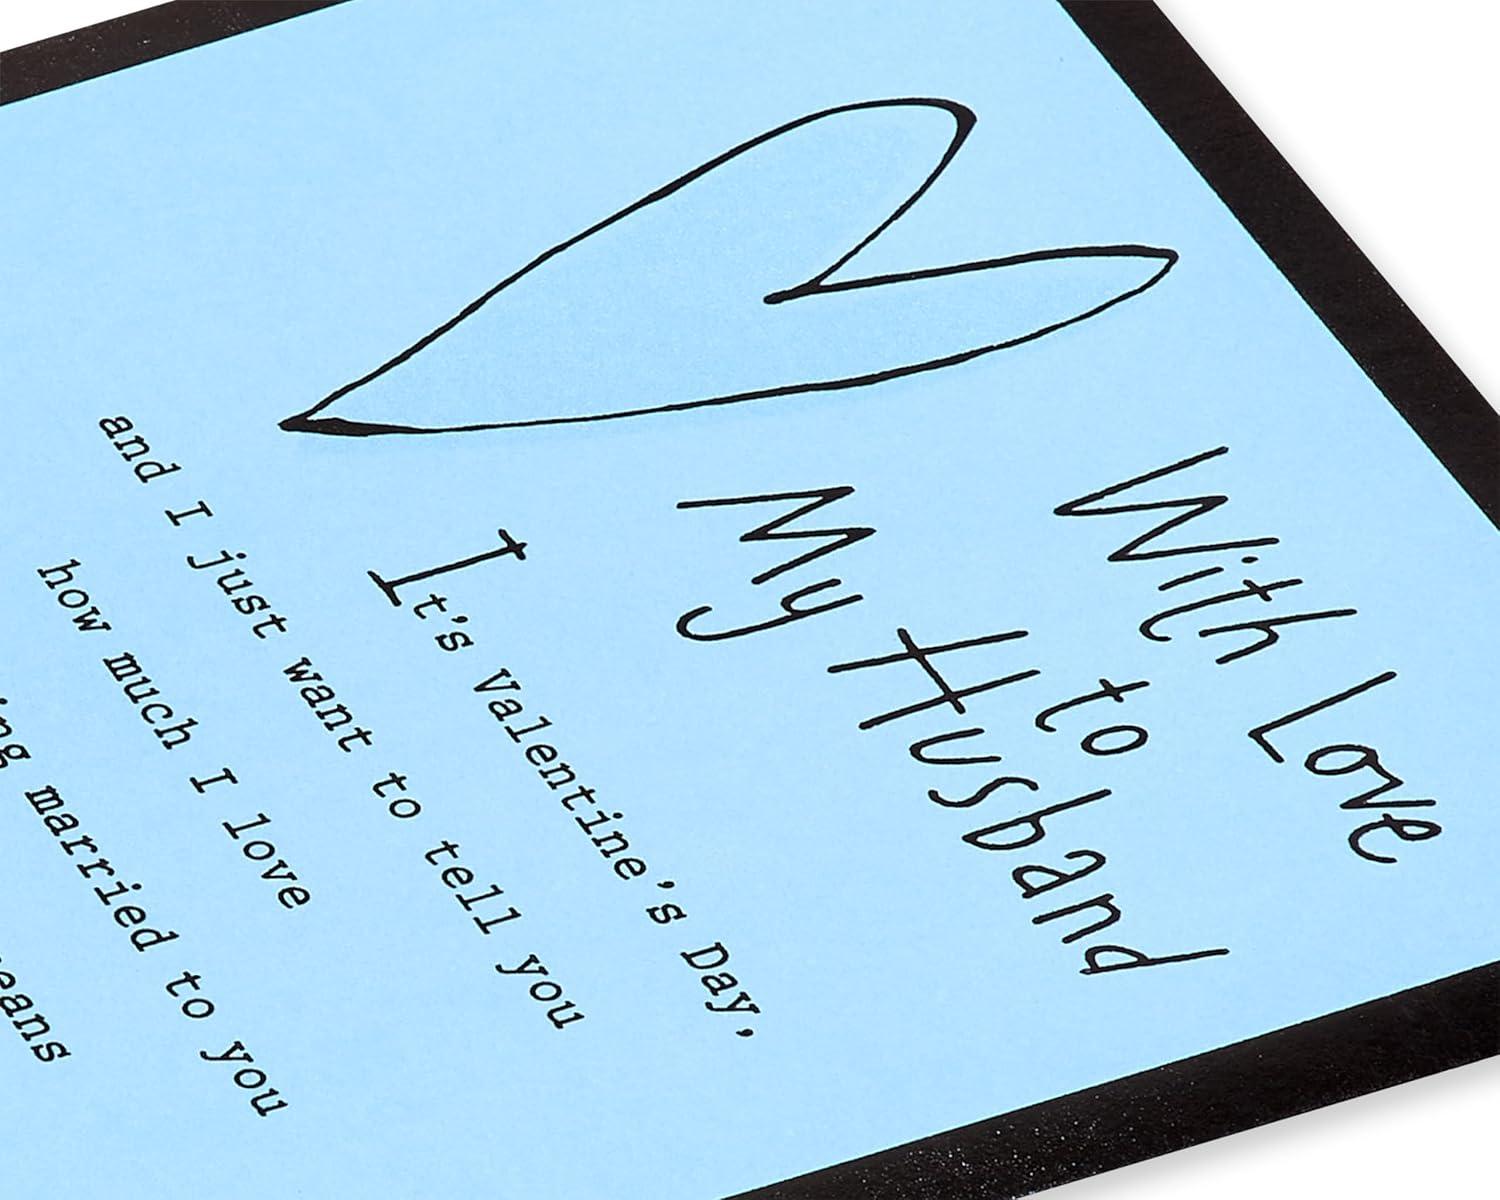 With Love
to
My Husband
It's Valentine's Day,
and I just want to tell you
how much I love
married to you